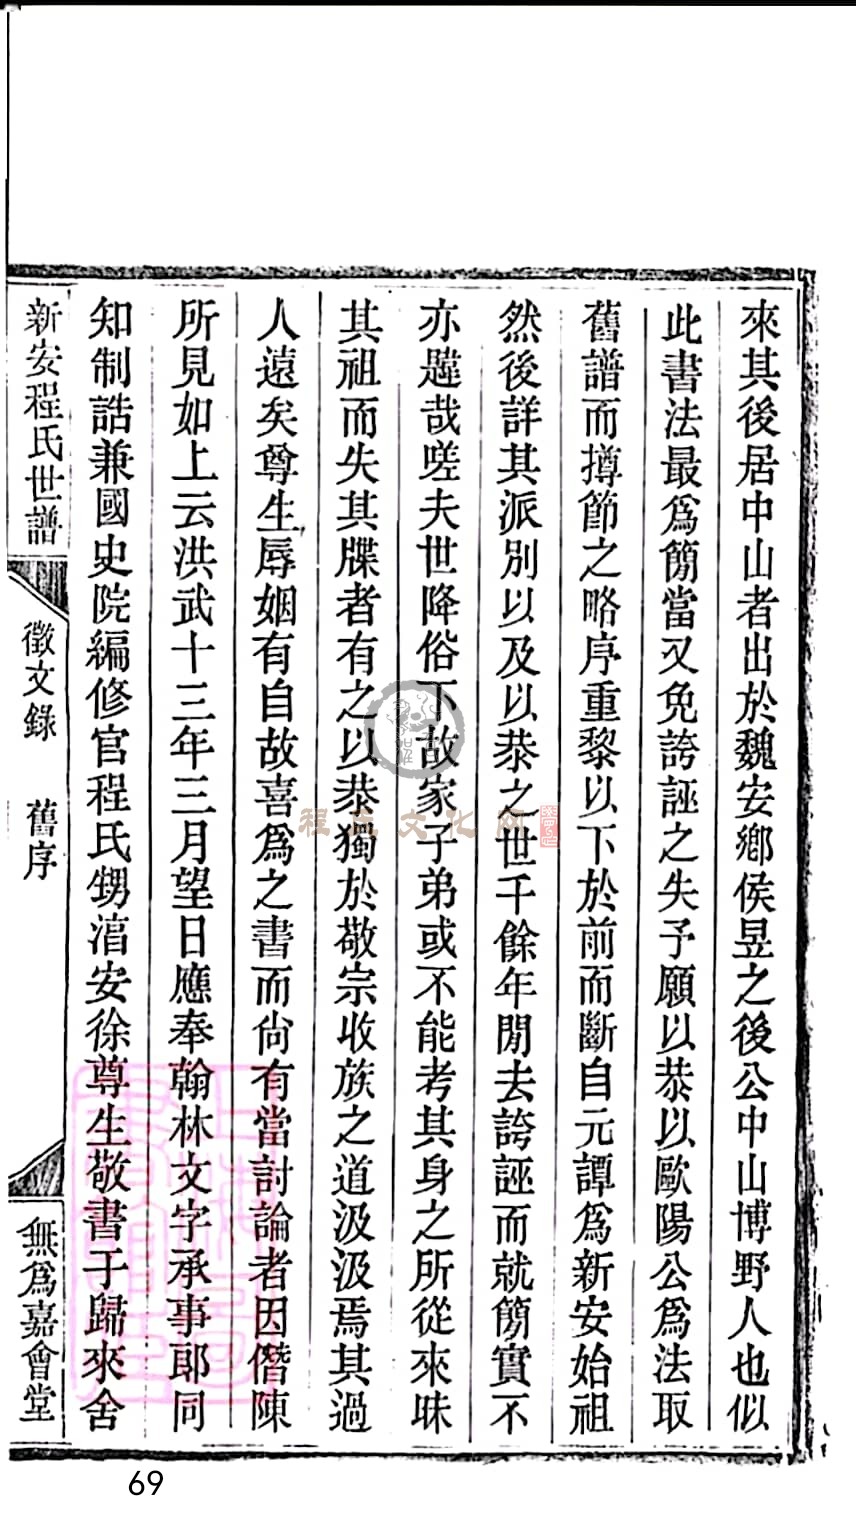 來其後居中山者出於魏安鄉侯昱之後公中山博野人也似
此書法最爲簡當又免誇誣之失予願以恭以歐陽公爲法取
舊譜而撙節之略序重黎以下於前而斷自元譚爲新安始祖
然後詳其派別以及以恭之世千餘年閒去誇誣而就簡實不
亦韙哉嗟夫世降俗下故家子弟或不能考其身之所從來昧
其祖而失其牒者有之以恭獨於敬宗收族之道汲汲焉其過
人遠矣尊生辱姻有自故喜爲之書而尙有當討論者因僭陳
所見如上云洪武十三年三月望日應奉翰林文字承事郎同
知制誥兼國史院編修官程氏甥淯安徐尊生敬書于歸來舍
新安程氏世譜 徵文錄 舊序 無爲嘉會堂
程氏文化网
69